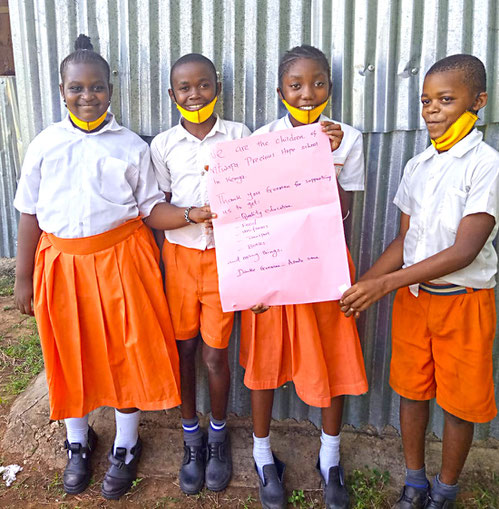 We are the children of
Precious Hope school
in Kenya
Thank you Germany for supporting
us to get:
- Quality education
- Food
- Uniforms
- Books
and many things.
Danke Germany - Asante sana